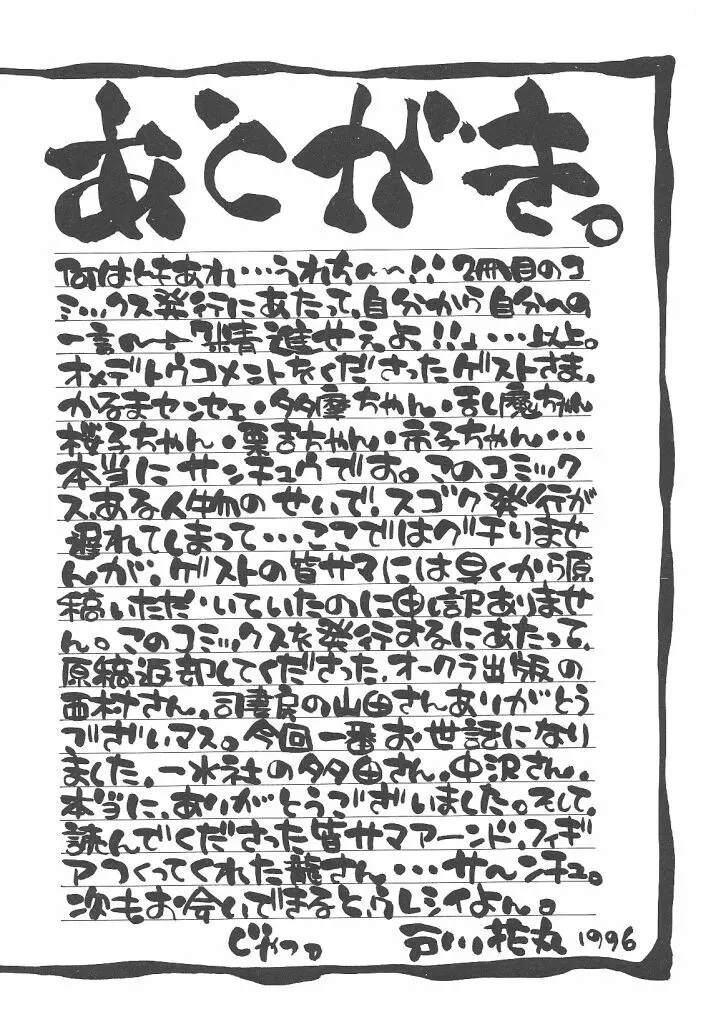 あとがき。
何はともあれ…うれちぃ〜!! 2冊目のコ
ミックス発行にあたって、自分から自分への
一言の〜っ「精進せぇよ!!」…以上。
オメデトウコメントをくださったゲストさま、
かるまセンセェ・多摩ちゃん・乱魔ちゃん
桜子ちゃん・栗吉ちゃん・市子ちゃん…
本当にサンキュウです。このコミック
ス、ある人物のせいで、スゴク発行が
遅れてしまって…ここではグチりませ
んが、ゲストの皆サマには早くから原
稿いただいていたのに申し訳ありませ
ん。このコミックスを発行するにあたって、
原稿返却してくださった、オークラ出版の
西村さん、司書房の山田さんありがとう
ございマス。今回一番お世話になり
ました、一水社の多田さん、中沢さん、
本当に、ありがとうございました。そして、
読んでくださった皆サマアーンド、フィギ
アつくってくれた龍さん…サ〜ンチュ。
次もお会いできるとウレシイよん。
じゃっ。 石川花丸 1996